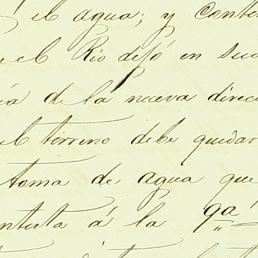 el agua; y conten
el Rio dejó en su
ia de la nueva direc
el terreno debe quedar
toma de agua que
ntesta á la 9a